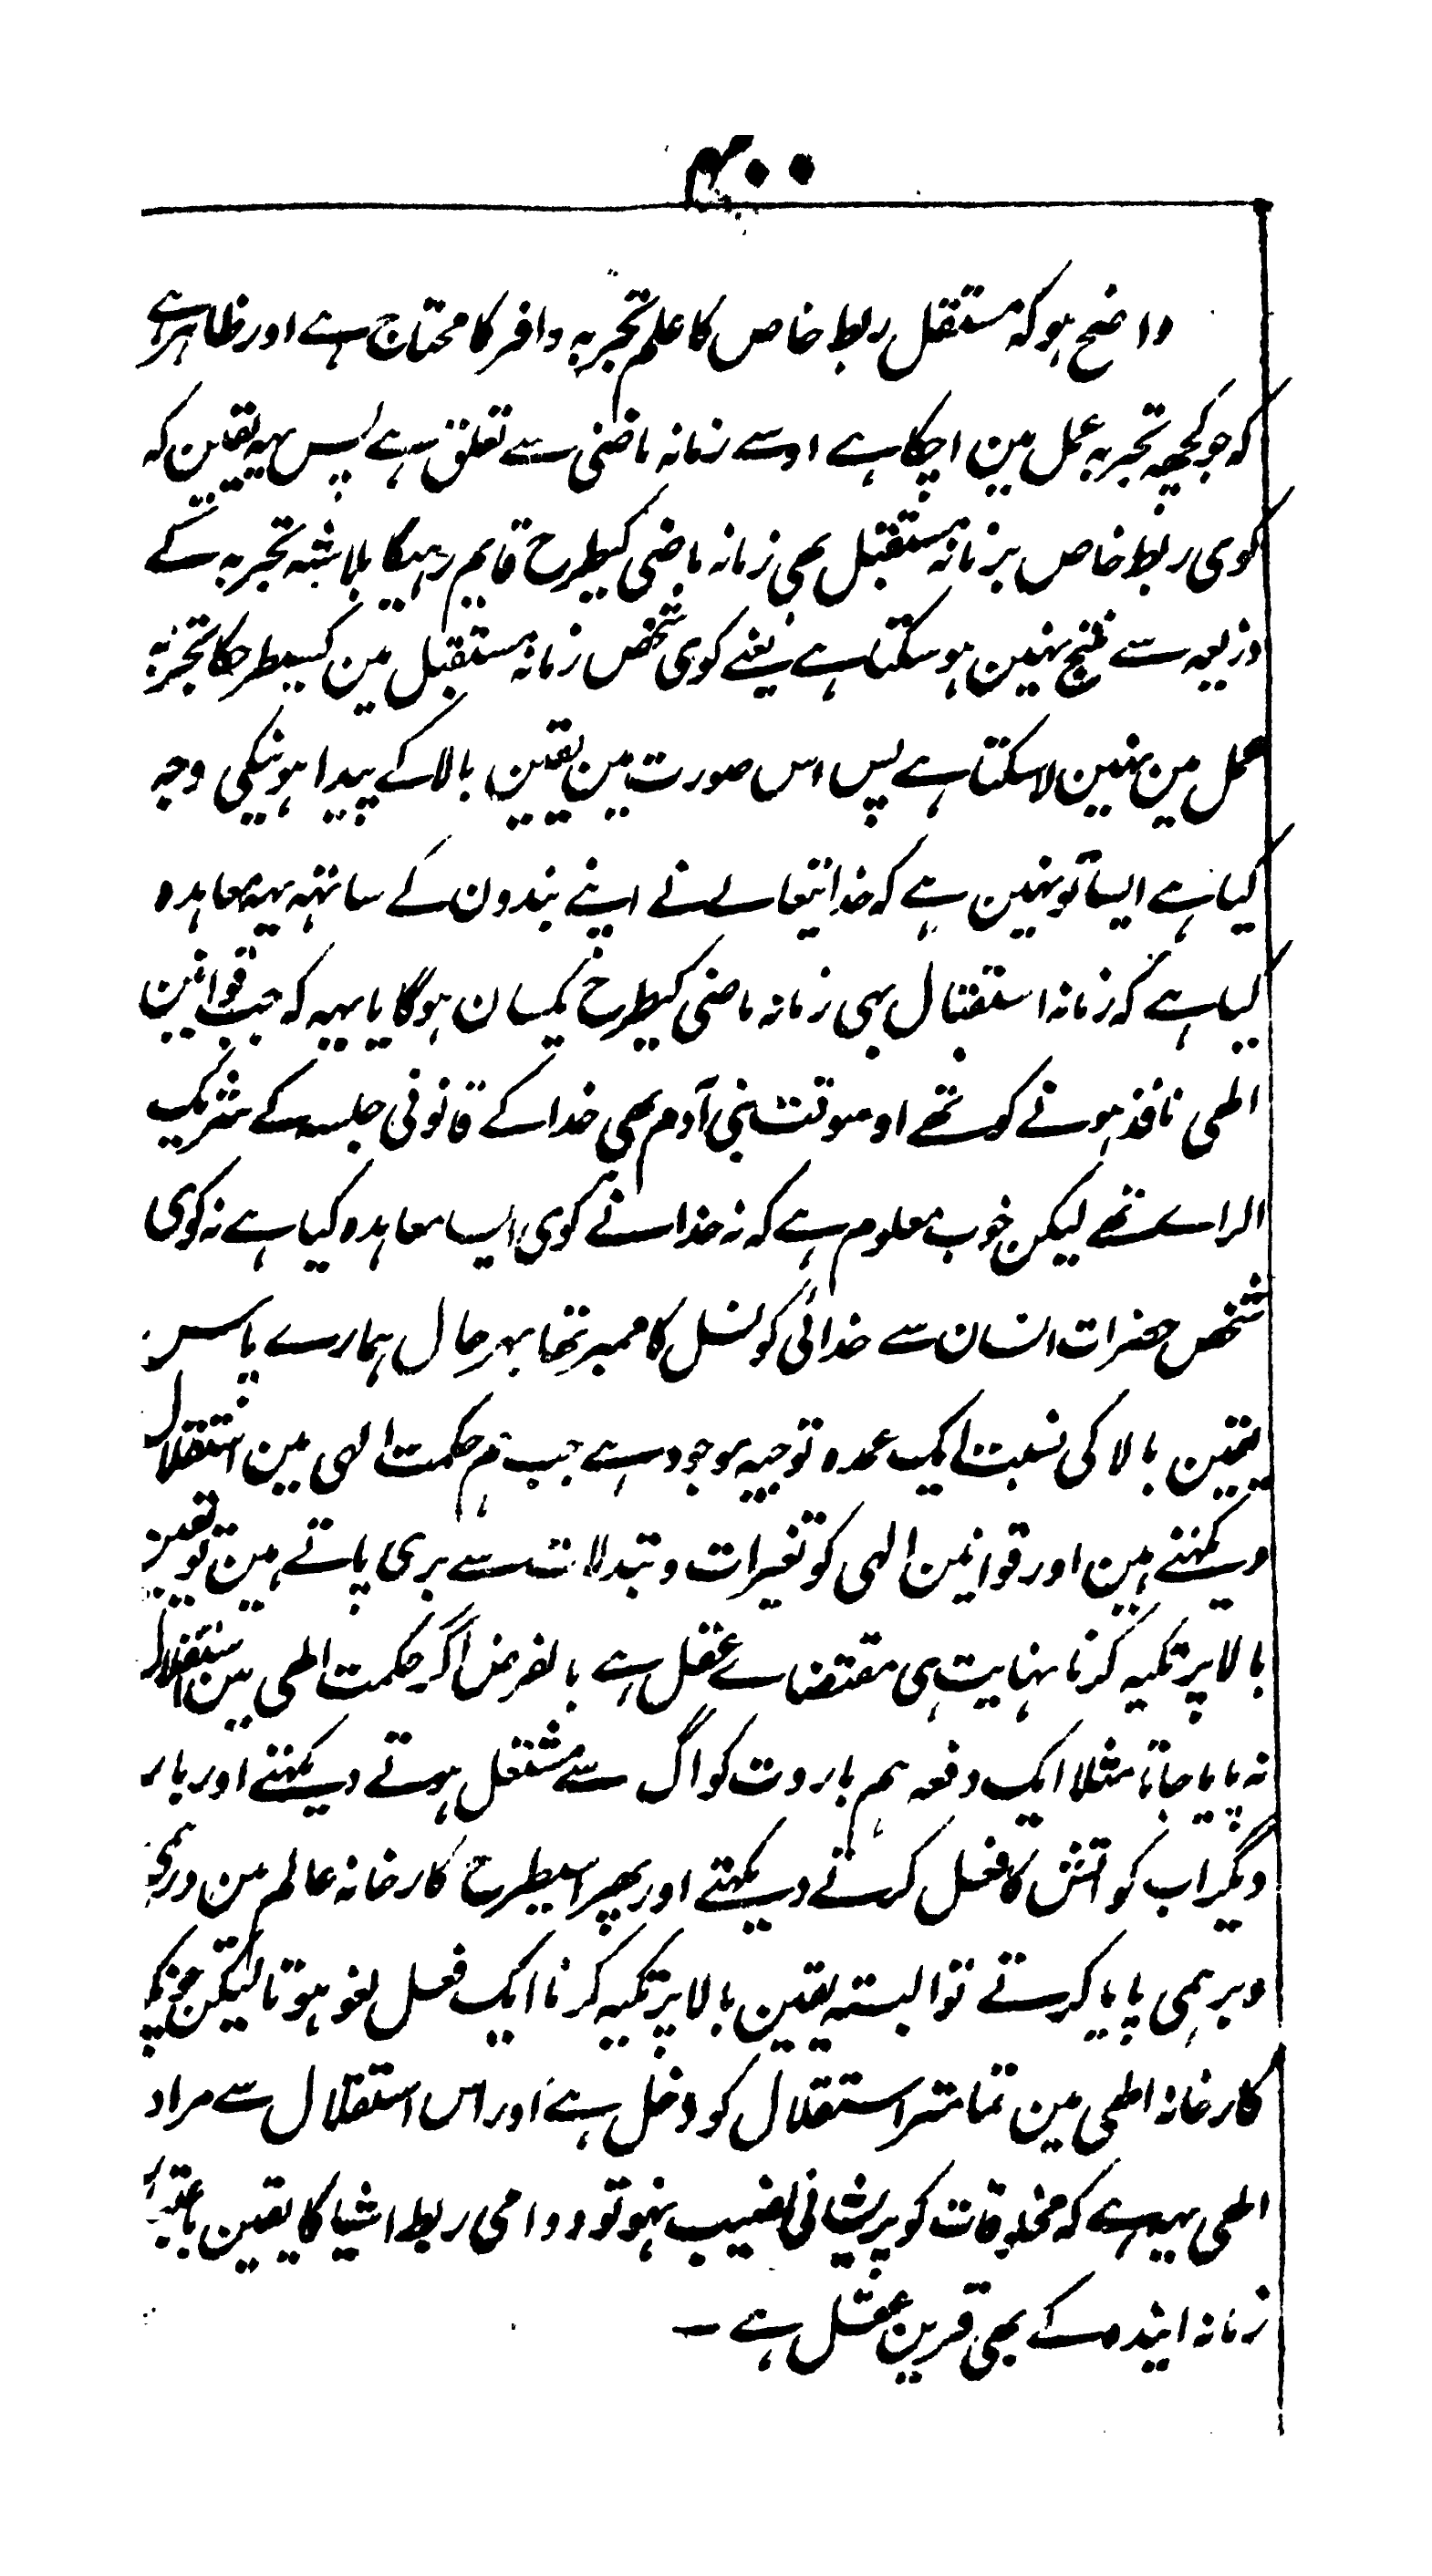 ۴۰۰
واضح ہو کہ مستقل ربط خاص کا علم تجربہ وافر کا محتاج ہے اور ظاہر ہے
کہ جو کچہہ تجربہ عمل مین اچکا ہے اوسے زمانہ ماضی سے تعلق ہے پس یہہ یقین کہ
کوی ربط خاص بزمانہ مستقبل بھی زمانہ ماضی کیطرح قایم رہیگا بلا شبہ تجربہ کے
ذریعہ سے منتج نہین ہو سکتا ہے یعنے کوی شخص زمانہ مستقبل مین کسیطرحکا تجربہ
عمل مین نہین لا سکتا ہے پس اس صورت مین یقین بالا کے پیدا ہونیکی وجہ
کیا ہے ایسا تو نہین ہے کہ خدایتعالے نے اپنے بندون کے ساتہہ یہہ معاہدہ
کیا ہے کہ زمانہ استقبال بہی زمانہ ماضی کیطرح یکسان ہوگا یا یہہ کہ جب قوانین
الھی نافذ ہونے کو تھے اوسوقت بنی آدم بھی خدا کے قانونی جلسہ کے شریک
الراے تھے لیکن خوب معلوم ہے کہ نہ خدا نے کوی ایسا معاہدہ کیا ہے نہ کوی
شخص حضرات انسان سے خدائی کونسل کا ممبر تھا بہرحال ہمارے پاس
یقین بالا کی نسبت ایک عمدہ توجیہ موجود ہے جب ہم حکمت الہی مین استقلال
دیکہتے ہین اور قوانین الہی کو تغیرات و تبدلات سے بری پاتے ہین تو یقین
بالا پر تکیہ کرنا نہایت ہی مقتضاے عقل ہے بالفرض اگر حکمت الھی مین استقلال
نہ پایا جاتا مثلا ایک دفعہ ہم باروت کو اگ سے مشتعل ہوتے دیکہتے اور بار
دیگر اب کو اتش کا فعل کرتے دیکہتے اور پھر اسیطرح کارخانہ عالم مین درہمی
وبرہمی پایا کرتے تو البتہ یقین بالا پر تکیہ کرنا ایک فعل لغو ہوتا لیکن چونکہ
کارخانہ الھی مین تمامتر استقلال کو دخل ہے اور اس استقلال سے مراد
الھی یہہ ہے کہ مخلوقات کو پریشانی نصیب نہو تو دوامی ربط اشیا کا یقین باعتبار
زمانہ ایندہ کے بھی قرین عقل ہے ـ